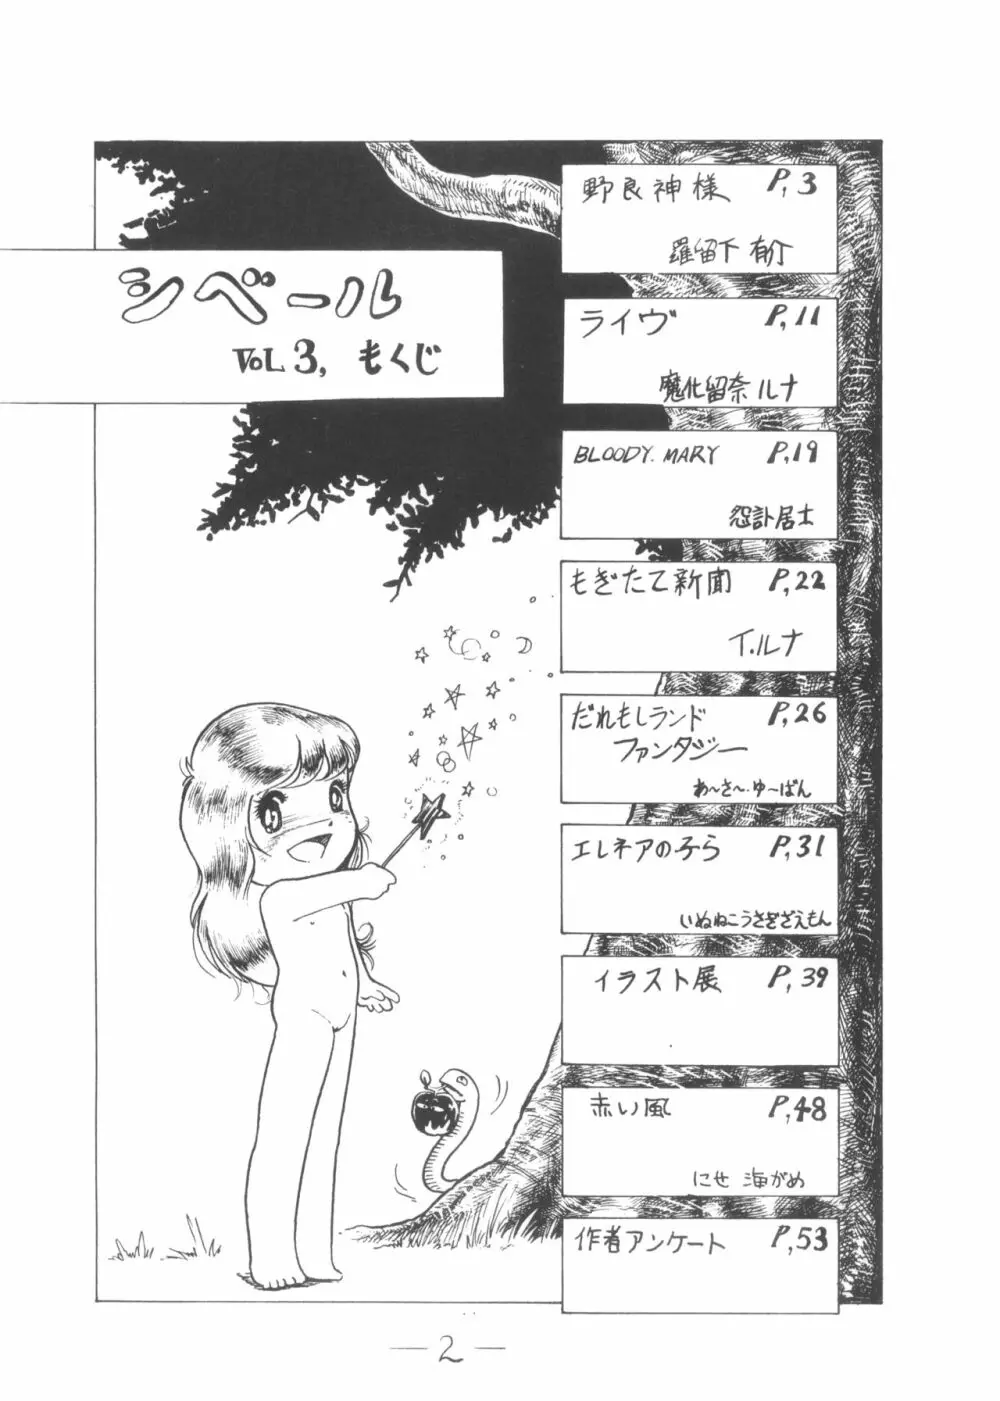 シベール
VOL 3, もくじ
野良神様 P,3
羅留下 有汀
ライヴ P,11
魔化留奈 ルナ
BLOODY.MARY P,19
怨訃居士
もぎたて新聞 P,22
T.ルナ
だれもしランド P,26
ファンタジー
あ〜さ〜・ゆ〜ばん
エレネアの子ら P,31
いぬねこうさぎざえもん
イラスト展 P,39
赤い風 P,48
にせ 海がめ
作者アンケート P,53
— 2 —